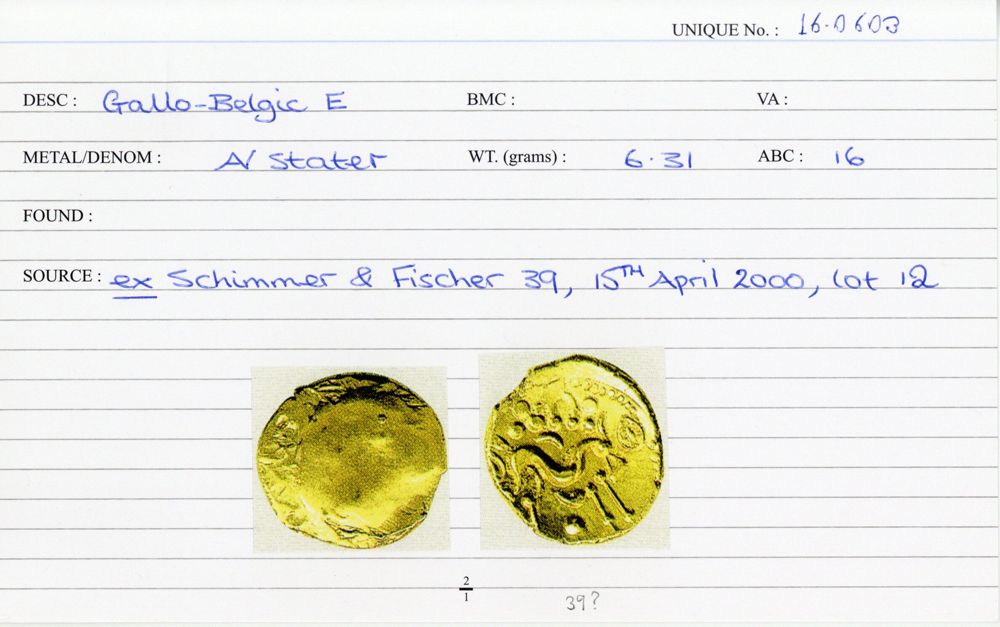 UNIQUE No. : 16.0603
DESC : Gallo-Belgic E BMC : VA :
METAL/DENOM : A/ Stater WT. (grams) : 6.31 ABC : 16
FOUND :
SOURCE : ex Schimmer & Fischer 39, 15TH April 2000, lot 12
2
1
39?